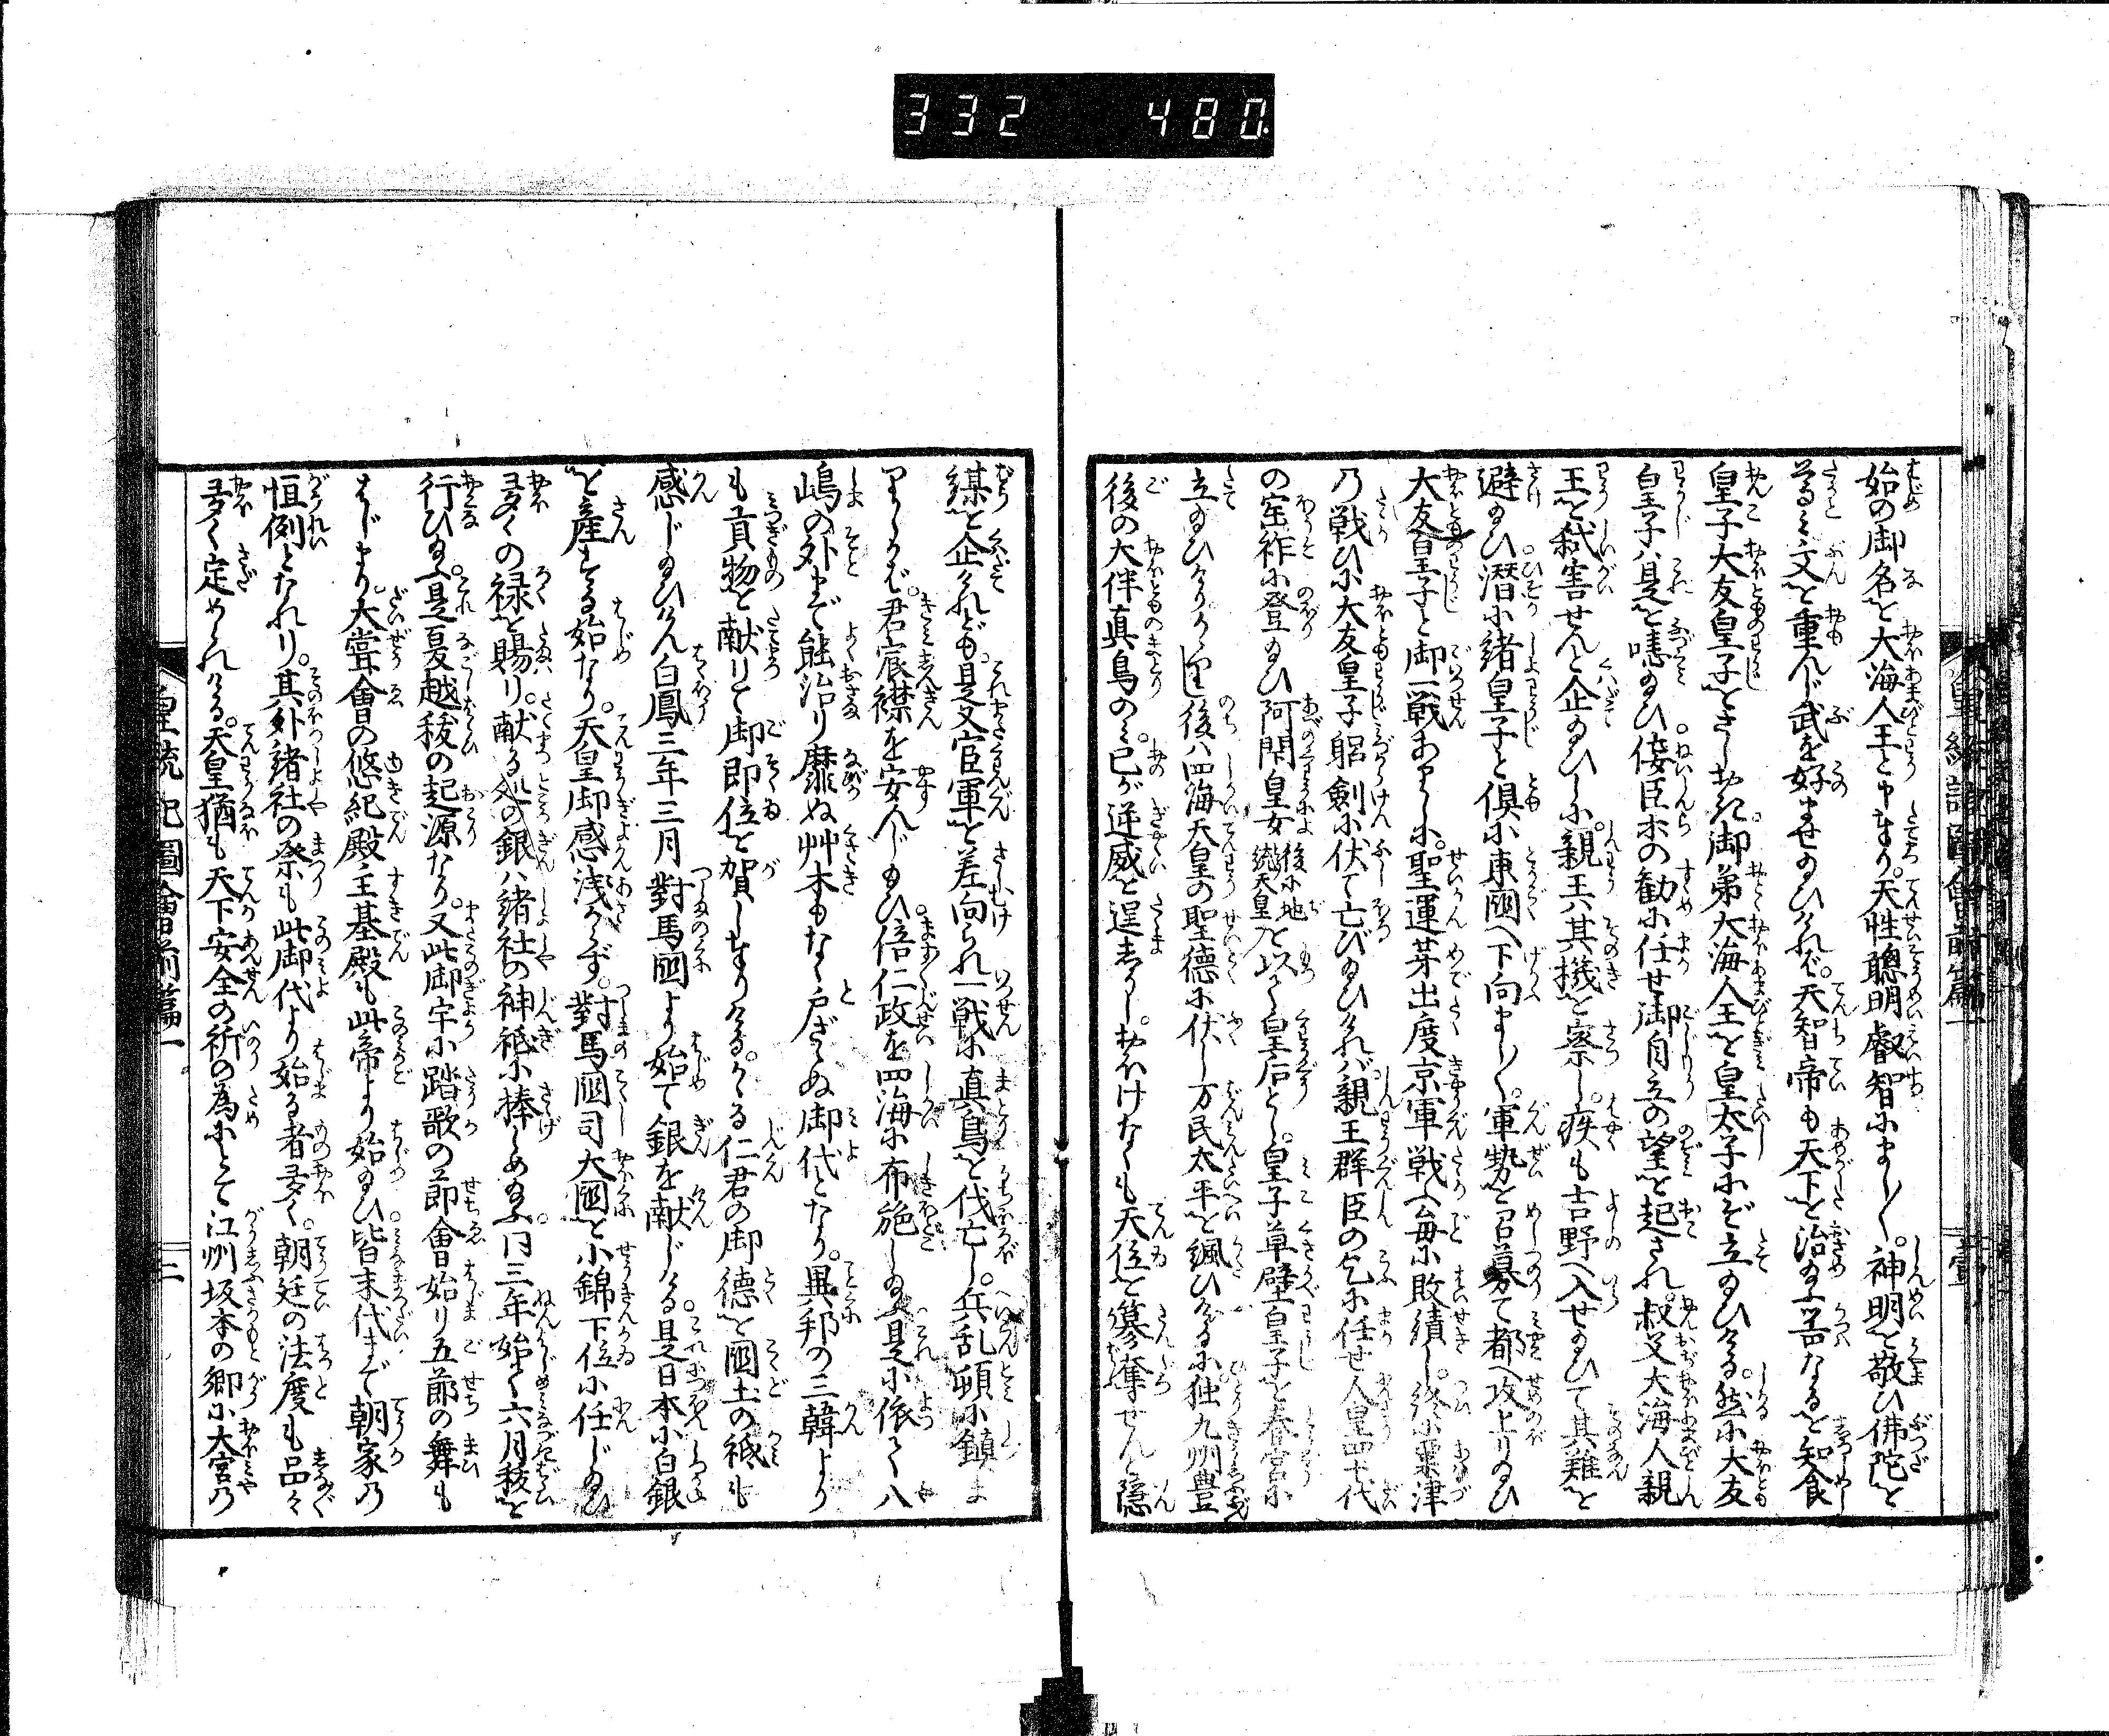 332 480
始の御名を大海人王と申奉り。天性聰明睿智にまし〱。神明を敬ひ佛陀を
尊み文を重んじ武を好ませ給ひければ。天智帝も天下を治給ふ器なるを知食
皇子大友皇子をさしおき。御弟大海人王を皇太子にぞ立給ひける。然に大友
皇子ハ是を嘻給ひ。侫臣木の勧に任せ御自立の望を起され。叔父大海人親
王を弑害せんと企給ひしに。親王ハ其機を察し。疾も吉野へ入せ給ひて其難を
避給ひ。潜に緒皇子と倶に東國へ下向まし〱。軍勢を召募て都へ攻上り給ひ
大友皇子と御一戦ありしに。聖運芽出度京軍戦ふ毎に敗績し。終に粟津
乃戦ひに大友皇子躬劍に伏て亡び給ひければ。親王群臣の乞に任せ人皇四十代
の宝祚に登給ひ。阿閇皇女後に地統天皇を以て皇后とし。皇子草壁皇子を春宮に
立給ひけり。後ハ四海天皇の聖德に伏し万民太平を諷ひけるに独九州豊
後の大伴真鳥のミ。己が逆威を逞ましうし。おほけなくも天位を簒奪せんと隠
謀を企けれども。是又官軍を差向られ一戦に真鳥を伐亡し。兵乱頓に鎮ま
りしかば。君宸襟を安んじ給ひ。倍仁政を四海に布施し給ふ。是に依て八
嶋の外まで能治り靡ぬ艸木もなく戸ざゝぬ御代となり。異邦の三韓より
も貢物を献りて御即位を賀し奉りける。かゝる仁君の御德を國土の祗も
感じ給ひけん白鳳三年三月對馬國より始て銀を献じける。是日本に白銀
を産する始なり。天皇御感淺からず。對馬國司大國を小錦下位に任じ給ひ
多くの禄を賜り。献る処の銀ハ緒社の神祗に捧しめ給ふ。同三年始て六月秡を
行ひ給ふ。是夏越秡の起源なり。又此御宇に踏歌の節會始り五節の舞も
はじまり。大嘗會の悠紀殿主基殿も此帝より始給ひ。皆末代まで朝家乃
恒例となれり。其外緒社の祭も此御代より始る者多く。朝廷の法度も品々
多く定められける。天皇猶も天下安全の祈の為にとて江州坂本の郷に大宮乃
皇統記圖會前篇一
二